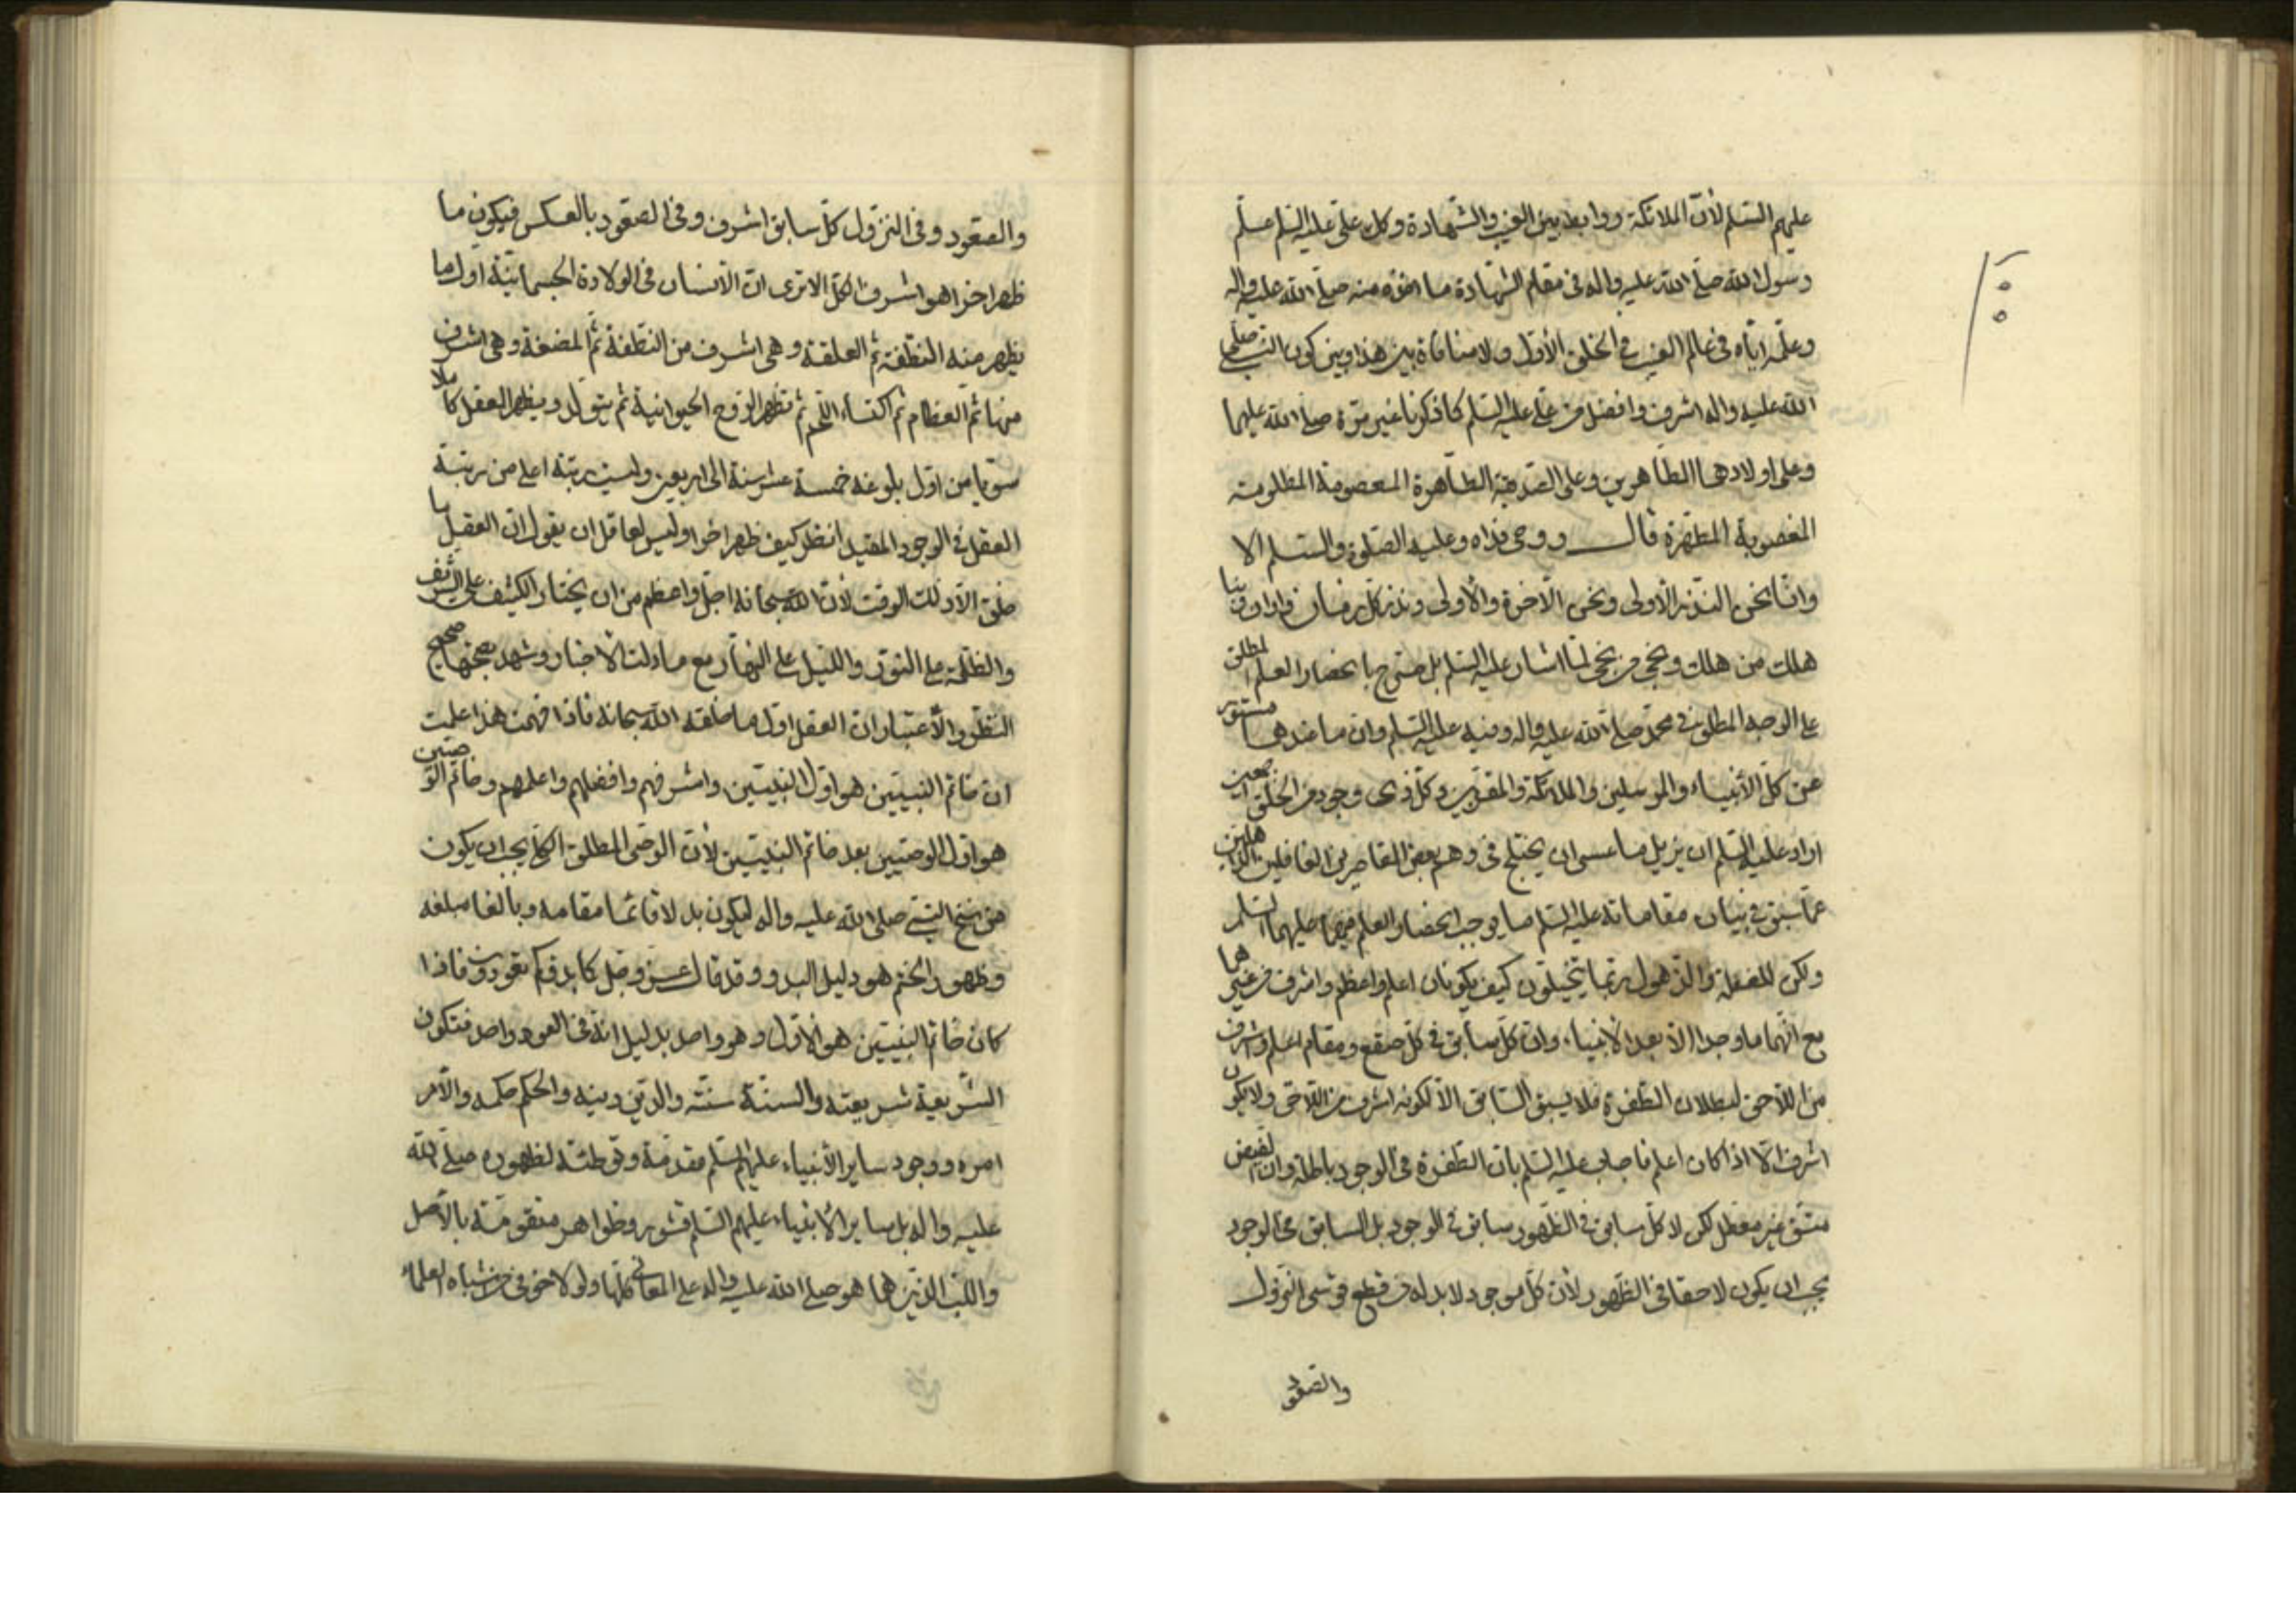 عليهم السلم لأن الملائكة روابط بين الغيب والشهادة وكل علي عليه السلم علم
رسول الله صلى الله عليه واله في مقام الشهادة ما اخذه منه صلى الله عليه واله
وعلمه اياه في عالم الغيب في الخلق الأول ولا منافاة بين هذا وبين كون النبي صلى
الله عليه واله اشرف وافضل من علي عليه السلم كما ذكرنا غير مرة صلى الله عليهما
وعلى اولادهما الطاهرين وعلى الصديقة الطاهرة المعصومة المظلومة
المغصوبة المطهرة قال روحي فداه وعليه الصلوة والسلم الا
وانا نحن النذر الأولى ونحن الآخرة والأولى ونذر كل زمان واوان وبنا
هلك من هلك ونجى من نجى لما اشار عليه السلم بل صرح بانحصار العلم المطلق
على الوجه المطلق في محمد صلى الله عليه واله وفيه عليه السلم وان ما عندهما مستور
عن كل الأنبياء والمرسلين والملائكة والمقربين وكل ذي وجود من الخلق اجمعين
اراد عليه السلم ان يزيل ما عسى ان يختلج في وهم بعض القاصرين الغافلين الذاهلين
عما سبق في بيان مقاماته عليه السلم ما يوجب انحصار العلم فيهما عليهما السلم
ولكن للغفلة والذهول ربما يتخيلون كيف يكونان اعلم واعظم واشرف من غيرهما
مع انهما ما وجدا الا بعد الأنبياء وان كل سابق في كل صقع ومقام اعلم واشرف
من اللاحق لبطلان الطفرة فلا يسبق السابق الا لكونه اشرف من اللاحق ولا يكون
اشرف الا اذا كان اعلم فاجاب عليه السلم بان الطفرة في الوجود باطلة وان الفيض
متسق غير معطل لكن لا كل سابق في الظهور سابق في الوجود بل السابق في الوجود
يجب ان يكون لاحقا في الظهور لأن كل موجود لا بد له من قطع قوسي النزول
والصعود
والصعود وفي النزول كل سابق اشرف وفي الصعود بالعكس فيكون ما
ظهر اخرا هو اشرف الكل الا ترى ان الانسان في الولادة الجسمانية اول ما
يظهر منه النطفة ثم العلقة وهي اشرف من النطفة ثم المضغة وهي اشرف
منها ثم العظام ثم اكتساء اللحم ثم تظهر الروح الحيوانية ثم يتولد ويظهر العقل كاملا
سويا من اول بلوغه خمسة عشر سنة الى اربعين وليست رتبة اعلى من رتبة
العقل في الوجود المقيد انظر كيف ظهر اخرا وليس لعاقل ان يقول ان العقل ما
خلق الا ذلك الوقت لأن الله سبحانه اجل واعظم من ان يختار الكثيف على الشريف
والظلمة على النور والليل على النهار مع ما دلت الأخبار وشهد بصحتها صحيح
النظر والاعتبار ان العقل اول ما خلقه الله سبحانه فاذا فهمت هذا علمت
ان خاتم النبيين هو اول النبيين واشرفهم وافضلهم واعلمهم وخاتم الوصيين
هو اول الوصيين بعد خاتم النبيين لأن الوصي المطلق الكلي يجب ان يكون
من سنخ النبي صلى الله عليه واله ليكون بدلا قائما مقامه وبالغا مبلغه
وظهور الختم هو دليل البدو وقد قال عز وجل كما بدءكم تعودون فاذا
كان خاتم النبيين هو الأول وهو واحد بدليل انه في العود واحد فتكون
الشريعة شريعته والسنة سنته والدين دينه والحكم حكمه والأمر
امره ووجود ساير الأنبياء عليهم السلم مقدمة وتوطئة لظهوره صلى الله
عليه واله بل ساير الأنبياء عليهم السلم قشور وظواهر متقومة بالأصل
واللب الذين هما هو صلى الله عليه واله على المعاني كلها ولولا خوفي من اشباه العلماء